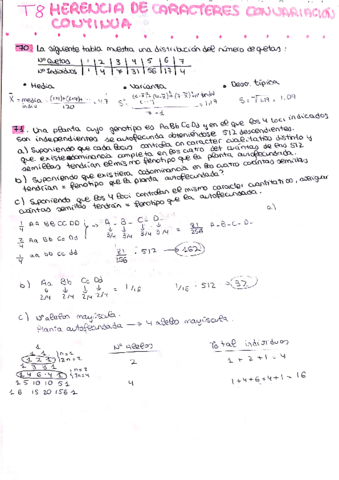 T8 HERENCIA DE CARACTERES CON VARIACIÓN
CONTINUA
70. La siguiente tabla muestra una distribución del número de quetas:
Nº Quetas 1 2 3 4 5 6 7
Nº Individuos 1 4 7 31 56 17 4
• Media • Varianza • Desv. típica
X = media = = 4,7 S² = = 1,19 S = √1,19 = 1,09
120
7-1
71. Una planta cuyo genotipo es Aa Bb Cc Dd y en el que los 4 loci indicados
son independientes se autofecunda obteniéndose 512 descendientes.
a) Suponiendo que cada locus controla un carácter cualitativo distinto y
que existe dominancia completa en los cuatro det. cuántas de las 512
semillas tendrían el mismo fenotipo que la planta autofecundada.
b) Suponiendo que existiera codominancia en los cuatro cuántas semillas
tendrían = fenotipo que la planta autofecundada?
c) Suponiendo que los 4 loci controlan el mismo carácter cuantitativo, averiguar
cuántas semillas tendrán = fenotipo que la autofecundada.
a)
1/4 AA BB CC DD A - B - C - D -
3/4 3/4 3/4 3/4 = 81/256 A-B-C-D-
2/4 Aa Bb Cc Dd
1/4 aa bb cc dd 81/256 · 512 → 162
b) Aa Bb Cc Dd
2/4 2/4 2/4 2/4 = 1/16 1/16 · 512 = 32
c) Nº alelos mayúscula.
Planta autofecundada → 4 alelos mayúscula.
1
1 1 n=1
1 2 1 n=2
1 3 3 1
1 4 6 4 1 n=4
1 5 10 10 5 1
1 6 15 20 15 6 1
Nº Alelos Total individuos
2 1+2+1=4
4 1+4+6+4+1=16